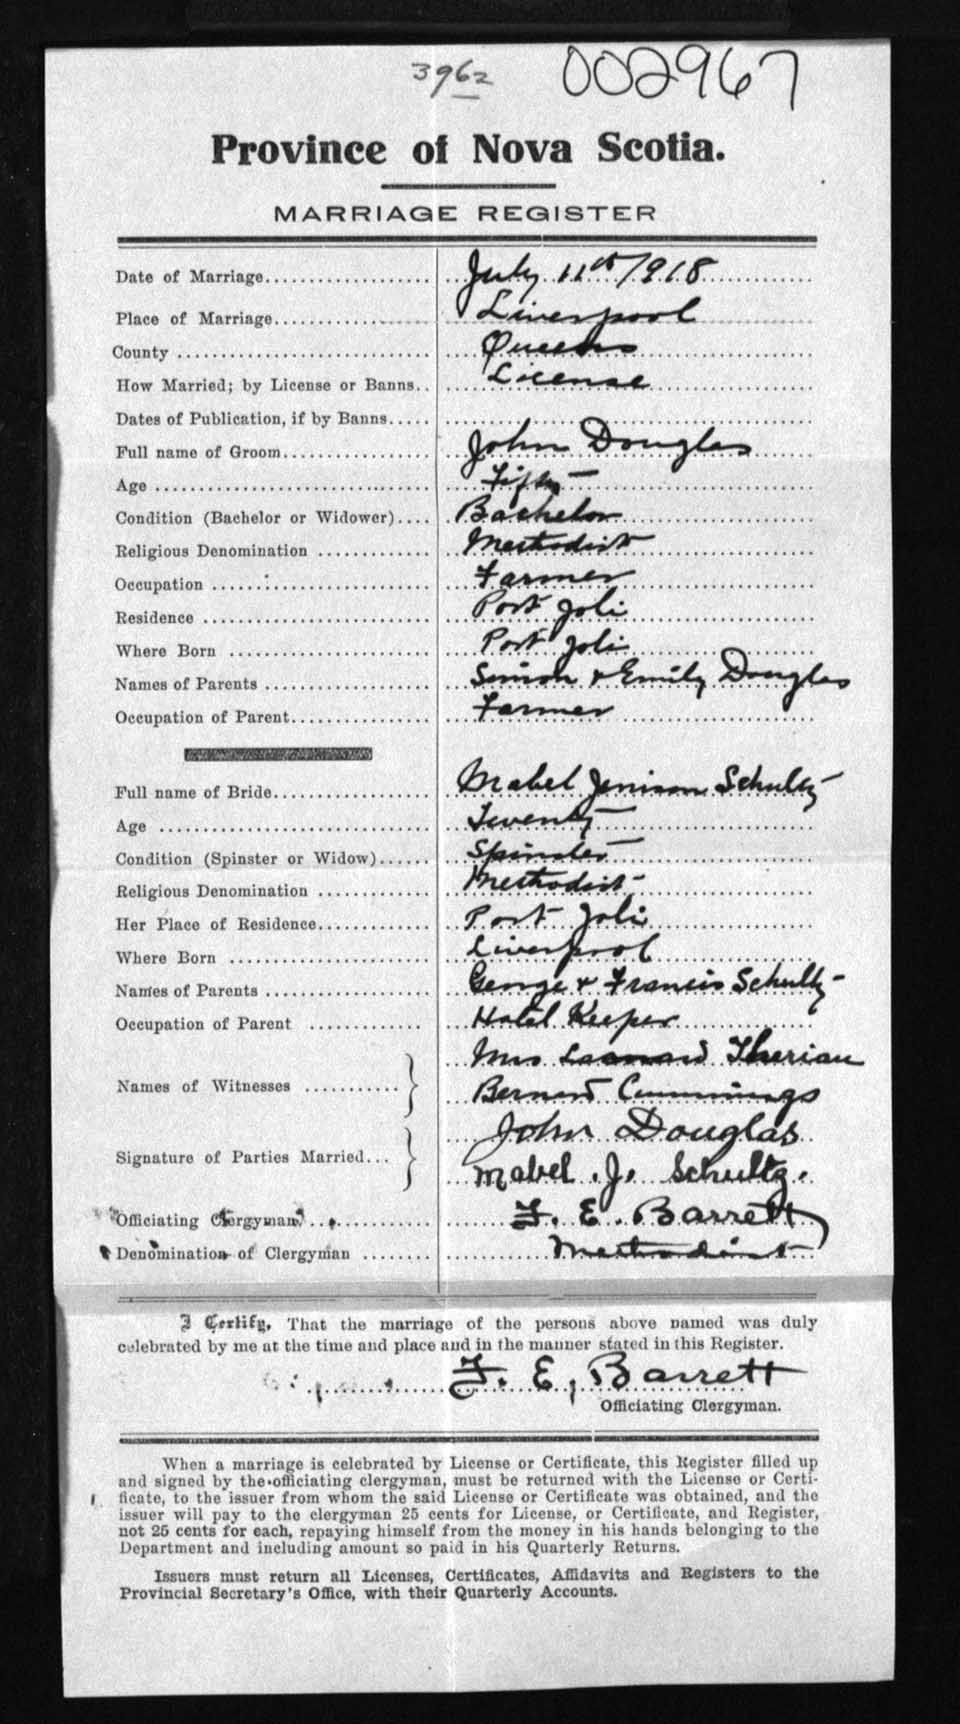 3962 002967
Province of Nova Scotia.
MARRIAGE REGISTER
Date of Marriage.................... July 11th/918
Place of Marriage.................... Liverpool
County .................... Queens
How Married; by License or Banns.. License
Dates of Publication, if by Banns.....
Full name of Groom.................... John Douglas
Age .................... Fifty
Condition (Bachelor or Widower).... Bachelor
Religious Denomination ............ Methodist
Occupation .................... Farmer
Residence .................... Port Joli
Where Born .................... Port Joli
Names of Parents .................... Simon & Emily Douglas
Occupation of Parent.................... Farmer
Full name of Bride.................... Mabel Jenison Schultz
Age .................... Twenty
Condition (Spinster or Widow)...... Spinster
Religious Denomination ............ Methodist
Her Place of Residence............ Port Joli
Where Born .................... Liverpool
Names of Parents .................... George & Francis Schultz
Occupation of Parent ............ Hotel Keeper
Mrs Therian
Names of Witnesses ...........
Bernard Cummings
John Douglas
Signature of Parties Married...
Mabel J. Schultz.
Officiating Clergyman F. E. Barrett
Denomination of Clergyman ........ Methodist
I Certify, That the marriage of the persons above named was duly
celebrated by me at the time and place and in the manner stated in this Register.
F. E. Barrett
Officiating Clergyman.
When a marriage is celebrated by License or Certificate, this Register filled up
and signed by the officiating clergyman, must be returned with the License or Certi-
ficate, to the issuer from whom the said License or Certificate was obtained, and the
issuer will pay to the clergyman 25 cents for License, or Certificate, and Register,
not 25 cents for each, repaying himself from the money in his hands belonging to the
Department and including amount so paid in his Quarterly Returns.
Issuers must return all Licenses, Certificates, Affidavits and Registers to the
Provincial Secretary's Office, with their Quarterly Accounts.